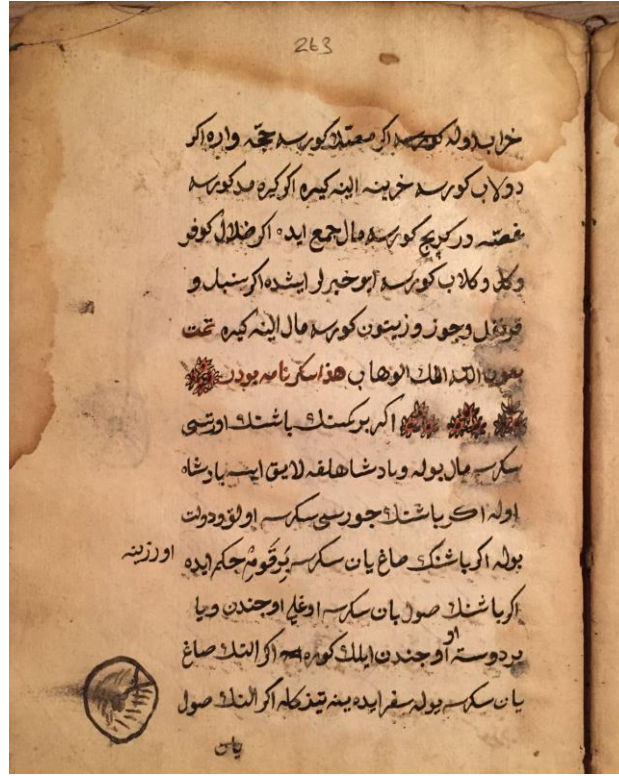 263
خراب اوله كورسه اكر مصتكا كورسه حقه واره اكر
دولاب كورسه خزينه الينه كيره اكر كيره مد كورسه
غصّه در كريج كورسه مال جمع ايده اكر ضلال كوفر
وكل وكلاب كورسه ايو خبرلر ايشده اكر سنبل و
قرنفل وجوز وزيتون كورسه مال الينه كيره تمت
بعون الله الملك الوهاب هذا سكرنامه بودر
اكر بركمسنك باشنك اورتسى
سكرسه مال بوله وپادشاهلغه لايق ايسه پادشاه
اوله اكر باشنك جورسى سكرسه اولو ودولت
بوله اكر باشنك صاغ يان سكرسه بَر قَومُ حكم ايده
اورزينه
اكر باشنك صول يان سكرسه اوغلى اوجندن ويا
بر دوستى اوجندن ايلك كوره اكر النك صاغ
يان سكرسه يوله سفر ايده ينه تيذ كله اكر النك صول
يان